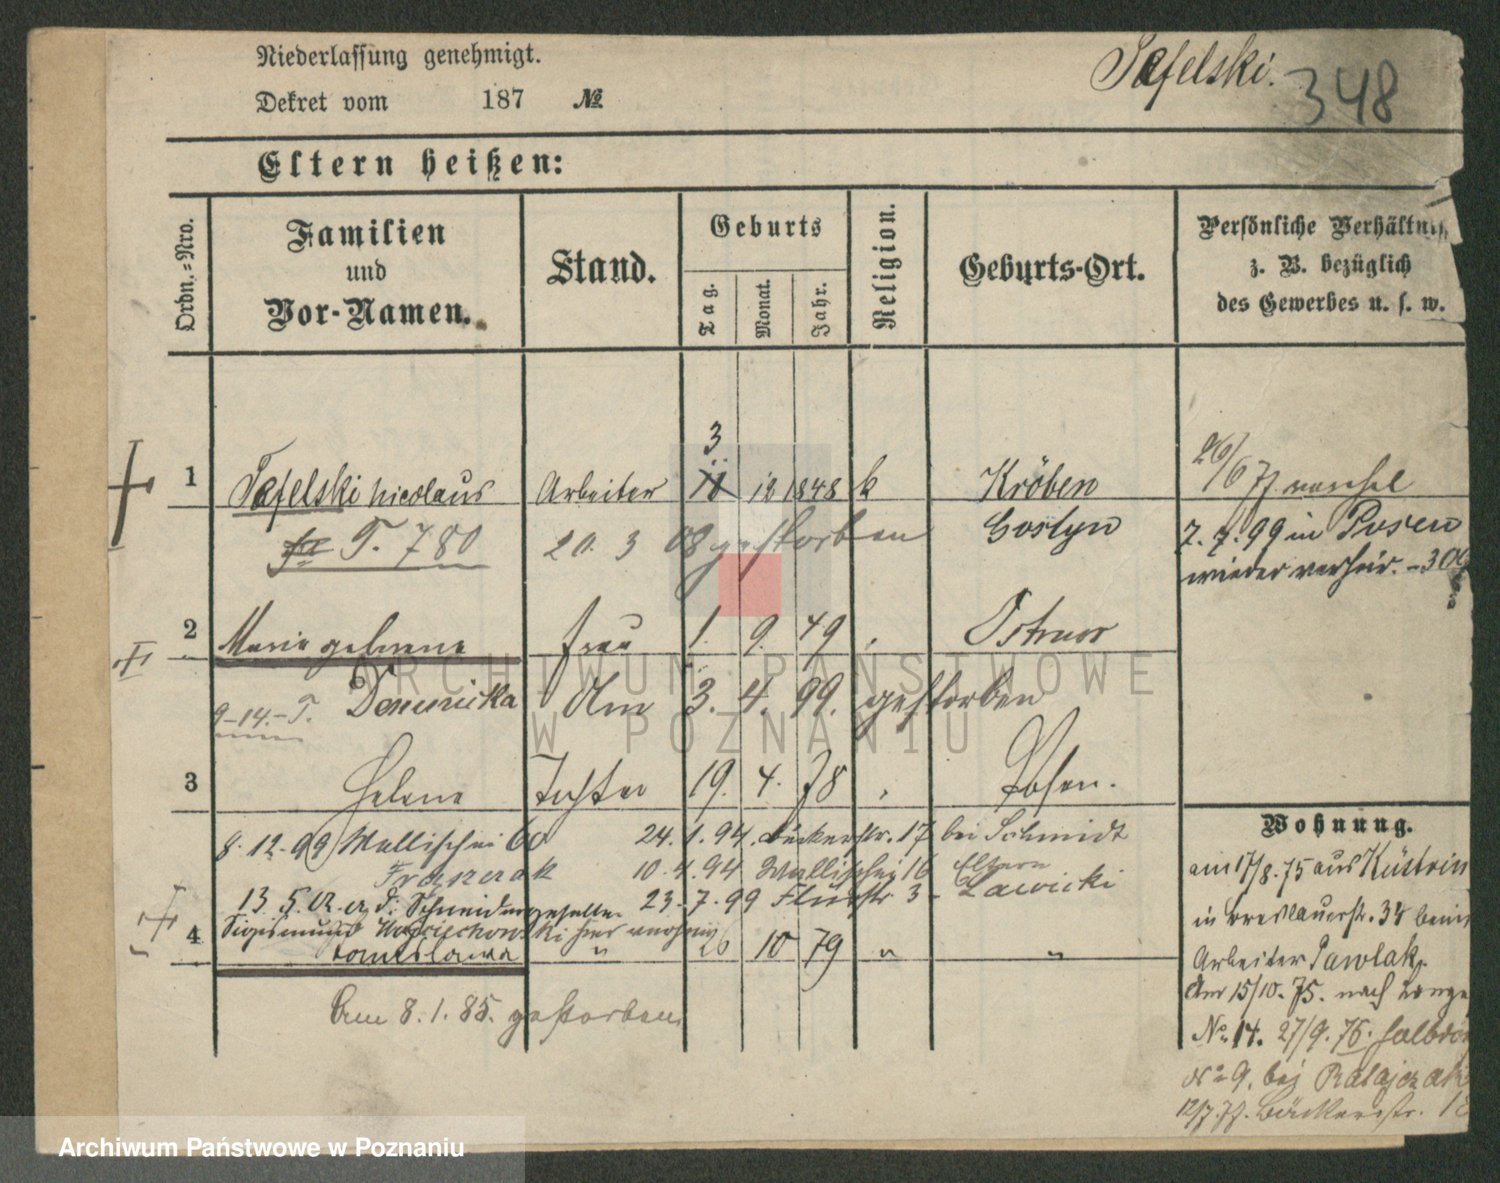 Niederlassung genehmigt.
Dekret vom 187 №
Tafelski. 348
Eltern heißen:
Ordn.-Nro.
Familien
und
Vor-Namen.
Stand.
Geburts
Tag. Monat. Jahr.
Religion.
Geburts-Ort.
Persönliche Verhältniss
z. B. bezüglich
des Gewerbes u. s. w.
1 Tafelski Nicolaus Arbeiter 3 12 1848 k Kröben
26/6 77
T. 780 20. 3 08 gestorben Gostyn
7. 7. 99 in Posen
wieder verheir.
2 Maria geborene Frau 1. 9. 49 Ostrow
9-14.- T. Am 3. 4. 99. gestorben
3 Helene Tochter 19. 4. 78 Posen.
8. 12. 99 Wallischei 60 24. 1. 94. Bäckerstr. 17 bei Schmidt
Franzczak 10. 4. 94 Wallischei 16 Eltern
13. 5. Schneidergeselle 23. 7. 99 Flurstr 3 Lawicki
4 10 79 "
Am 8. 1. 85. gestorben
Wohnung.
am 17/8. 75 aus Küstrin
in Breslauerstr. 34 beim
Arbeiter Pawlak.
Am 15/10. 75. nach Lange
No 14. 27/9. 76. Halbdorf
No 9. bei Ratajczak
12/7. 77. Bäckerstr. 18
ARCHIWUM PAŃSTWOWE
W POZNANIU
Archiwum Państwowe w Poznaniu